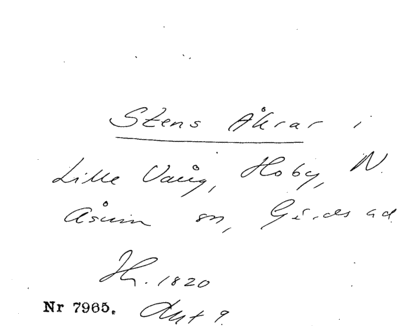 Stens Åkrar i
Lille Vång, Hoby, N.
Åsum sn, Gärds hd
H. 1820
Nr 7965. Akt 9